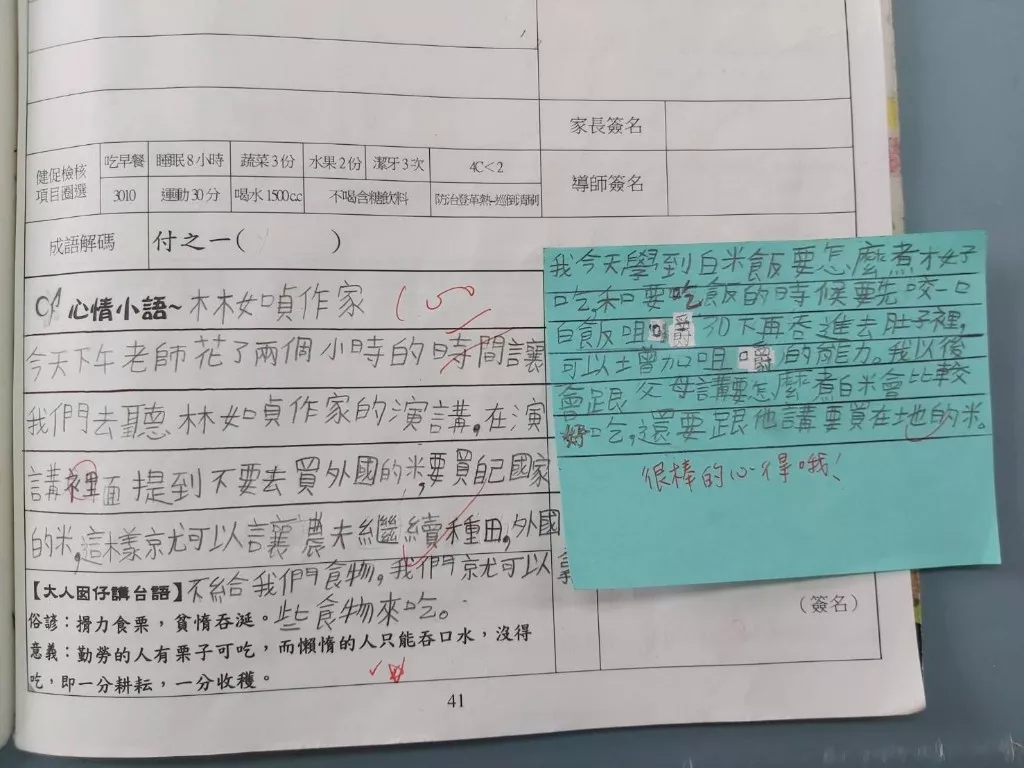 家長簽名
健促檢核
項目圈選
吃早餐 睡眠8小時 蔬菜3份 水果2份 潔牙3次 4C<2
3010 運動30分 喝水1500cc 不喝含糖飲料 防治登革熱-巡倒清刷
導師簽名
成語解碼 付之一( )
心情小語~林如貞作家
今天下午老師花了兩個小時的時間讓
我們去聽林如貞作家的演講,在演
講裡面提到不要去買外國的米,要買自己國家
的米,這樣就可以讓農夫繼續種田,外國
不給我們食物,我們就可以
些食物來吃。
【大人囡仔講台語】
俗諺:搰力食栗,貧惰吞涎。
意義:勤勞的人有栗子可吃,而懶惰的人只能吞口水,沒得
吃,即一分耕耘,一分收穫。
(簽名)
41
我今天學到白米飯要怎麼煮才好
吃,和要吃飯的時候要先咬一口
白飯咀嚼30下再吞進去肚子裡,
可以增加咀嚼的能力。我以後
會跟父母講要怎麼煮白米會比較
好吃,還要跟他講要買在地的米。
很棒的心得哦!